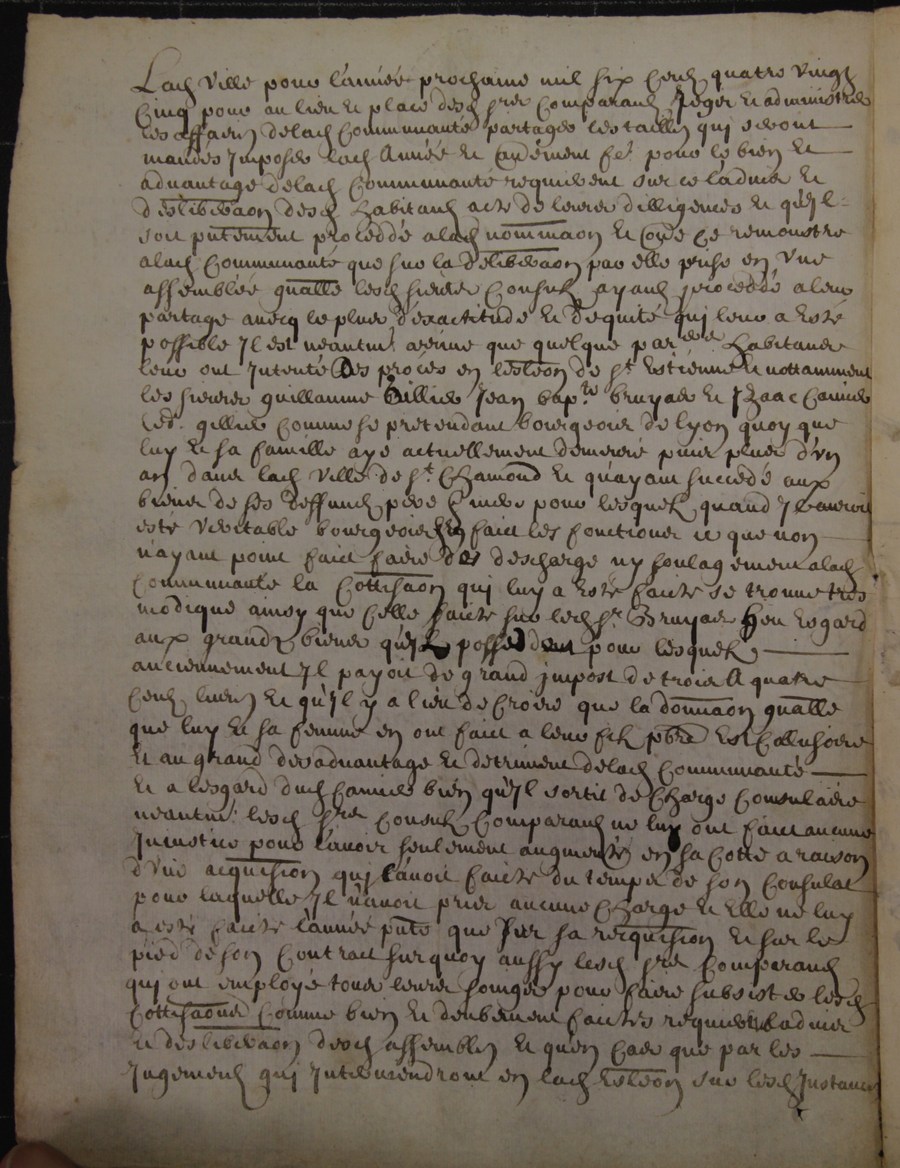 Lad Ville pour l'année prochaine mil six cens quatre vingt
Cinq pour au lieu et place desd srs Comparans Régir et administrer
les affaires de lad Communauté partager les tailles qui seront
mandés Imposés lad Année et pour le bien et
advantage de lad Communauté requierent sur ce l'advis et
deslibera͞on desd habitans acte de leurs dilligences et qu'il
soit p͞ntement proceddé a lad nomina͞on et ce remonstre
a lad Communauté que sur la delibera͞on par elle prise en une
assemblée g͞nalle lesd sieurs Consuls ayans proceddé a leur
partage avecq le plus d'exactitude et d'équité qui leur a esté
possible Il est neantmt arrivé que quelque par habitans
leur ont Intenté des procès en l'esle͞on de St Estienne et nottamment
les sieurs guillaume Gillier Jean bapte bruyas et Izaac Camier
led. gillier comme se pretendant bourgeois de lyon quoy que
luy et sa famille aye actuellement demeuré puis plus d'un
an dans lad Ville de St Chamond et qu'ayant succedé aux
biens de ses deffuncts pere & mere pour lesquels quand Il auroit
esté veritable bourgeois faict les fonctions ce que non
n'ayant point faict faire des descharge ny soulagement a lad
Communauté la Cottisa͞on qui luy a esté faicte se trouve tres
modique ainsy que celle faicte sur led sr Bruyas Heu esgard
aux grands biens qu'il possedent pour lesquels
anciennement Il payoit de grand impost de trois A quatre
Cens livres et qu'il y a lieu de Croire que la dona͞on g͞nalle
que luy et sa femme en ont faict a leur fils p͞bre Est Collusoire
et au grand desadvantage et detriment de lad Communauté
et a lesgard dud Camier bien qu'il sortit de Charge Consulaire
neantmt lesd srs Consuls Comparans ne luy ont faict aucune
Injustice pour l'avoir seulement augmenté en sa Cotte a raison
d'une acquision qu'il avoit faicte du temps de son Consulat
pour laquelle Il n'avoit pris aucune Charge et Elle ne luy
a esté faicte l'année p͞nte que sur sa requision et sur le
pied de son Contract surquoy aussy lesd srs Comparans
qui ont employé tous leurs soings pour faire subsister lesd
Cottisa͞ons Comme bien et deubement faictes requierent l'advis
et deslibera͞on desd assemblés et quen Cas que par les
Jugemens qui Interviendront en lad Esle͞on sur lesd Instances